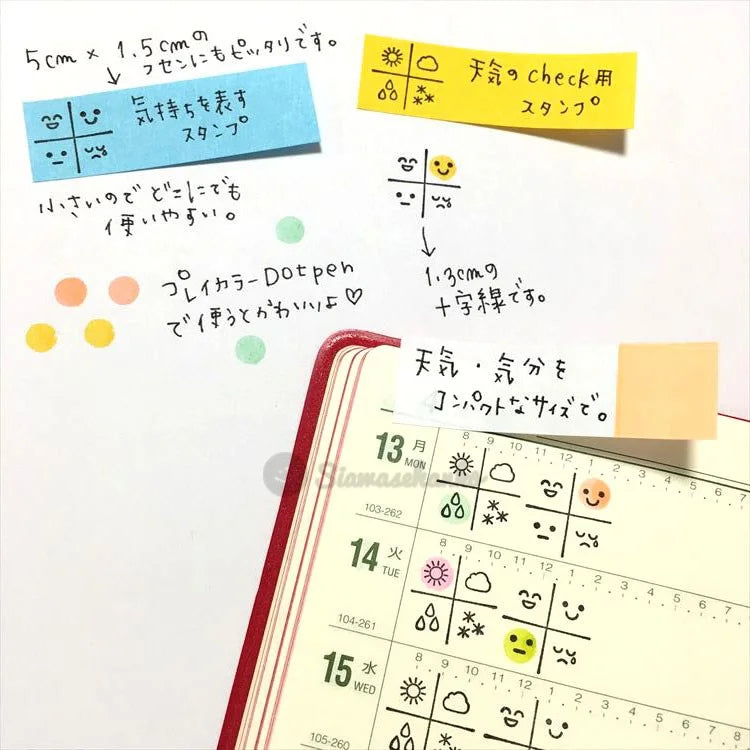 5cm × 1.5cmの
フセンにもピッタリです。
気持ちを表す
スタンプ
天気のcheck用
スタンプ
小さいのでどこにでも
使いやすい。
1.3cmの
十字線です。
プレイカラーDotpen
で使うとかわいいよ♡
天気・気分を
コンパクトなサイズで。
Siawasehanko
8 9 10 11 12 1 2 3 4 5 6 7
13 月
MON
103-262
8 9 10 11 12 1 2 3 4 5 6 7
14 火
TUE
104-261
8 9 10 11 12 1 2 3 4
15 水
WED
105-260